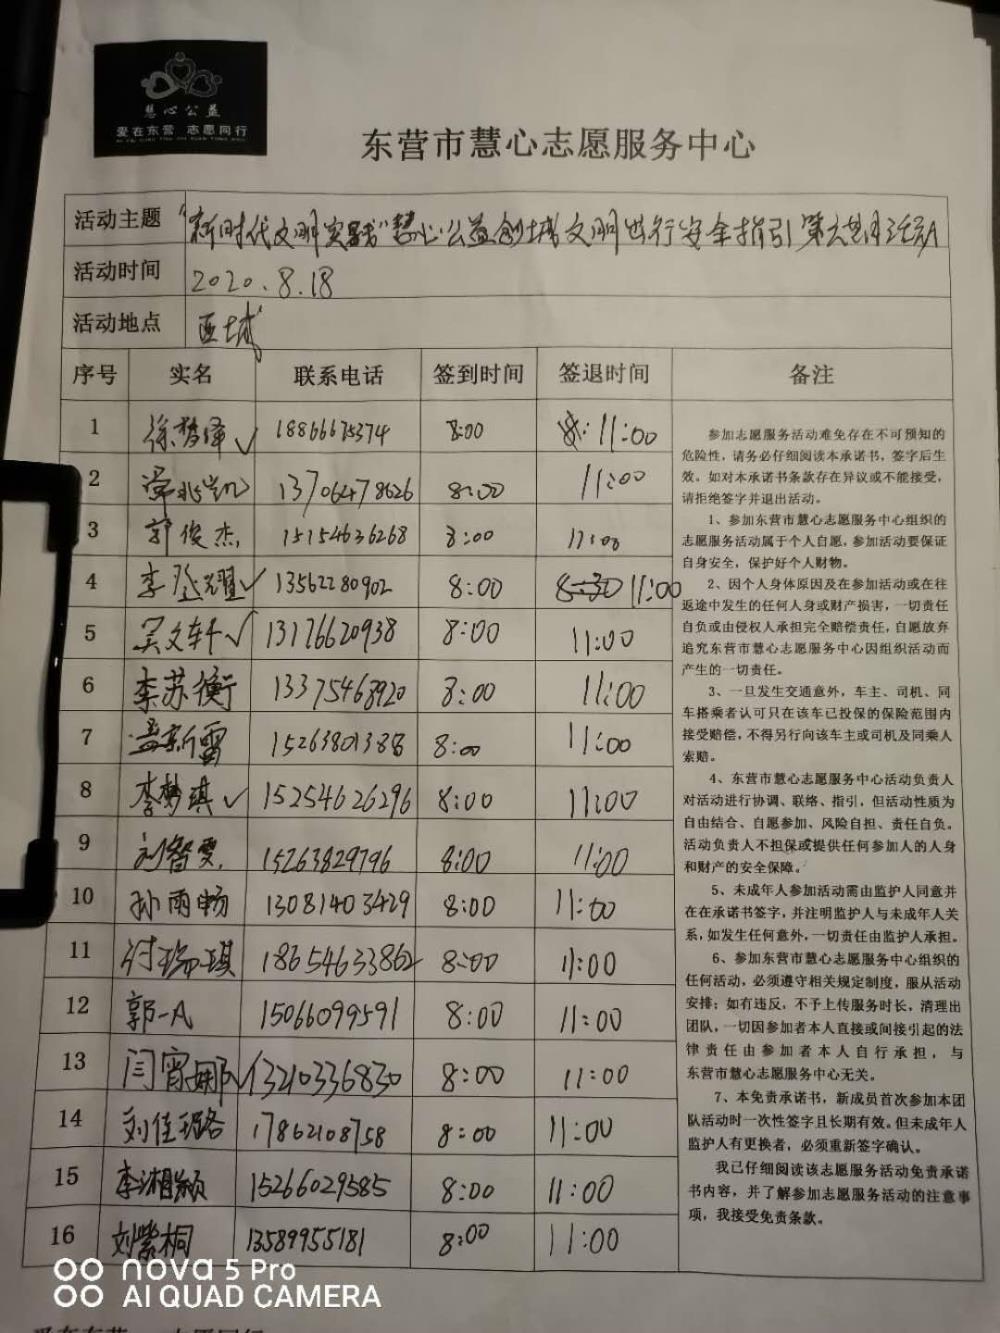 慧心公益
爱在东营 志愿同行
东营市慧心志愿服务中心
活动主题 "新时代文明实践"慧心公益创城文明出行安全指引第
活动时间 2020.8.18
活动地点 区城
序号 实名 联系电话 签到时间 签退时间 备注
1 徐梦泽 18866675374 8:00 8: 11:00
2 13706478626 8:00 11:00
3 郭俊杰 15154636268 8:00 11:00
4 李登耀 13562280902 8:00 8:30 11:00
5 吴文轩 13176620938 8:00 11:00
6 李苏衡 13375468920 8:00 11:00
7 盖新雷 15263801388 8:00 11:00
8 李梦琪 15254626296 8:00 11:00
9 刘智雯 15263829796 8:00 11:00
10 孙雨畅 13081403429 8:00 11:00
11 付瑞琪 18654633862 8:00 11:00
12 郭一A 15066099591 8:00 11:00
13 闫宵娜 13210336830 8:00 11:00
14 刘佳璐 17862108758 8:00 11:00
15 李湘颖 15266029585 8:00 11:00
16 刘紫桐 13589955181 8:00 11:00
参加志愿服务活动难免存在不可预知的
危险性，请务必仔细阅读本承诺书，签字后生
效。如对本承诺书条款存在异议或不能接受，
请拒绝签字并退出活动。
1、参加东营市慧心志愿服务中心组织的
志愿服务活动属于个人自愿，参加活动要保证
自身安全，保护好个人财物。
2、因个人身体原因及在参加活动或在往
返途中发生的任何人身或财产损害，一切责任
自负或由侵权人承担完全赔偿责任，自愿放弃
追究东营市慧心志愿服务中心因组织活动而
产生的一切责任。
3、一旦发生交通意外，车主、司机、同
车搭乘者认可只在该车已投保的保险范围内
接受赔偿，不得另行向该车主或司机及同乘人
索赔。
4、东营市慧心志愿服务中心活动负责人
对活动进行协调、联络、指引，但活动性质为
自由结合、自愿参加、风险自担、责任自负。
活动负责人不担保或提供任何参加人的人身
和财产的安全保障。
5、未成年人参加活动需由监护人同意并
在在承诺书签字，并注明监护人与未成年人关
系，如发生任何意外，一切责任由监护人承担。
6、参加东营市慧心志愿服务中心组织的
任何活动，必须遵守相关规定制度，服从活动
安排；如有违反，不予上传服务时长，清理出
团队，一切因参加者本人直接或间接引起的法
律责任由参加者本人自行承担，与
东营市慧心志愿服务中心无关。
7、本免责承诺书，新成员首次参加本团
队活动时一次性签字且长期有效。但未成年人
监护人有更换者，必须重新签字确认。
我已仔细阅读该志愿服务活动免责承诺
书内容，并了解参加志愿服务活动的注意事
项，我接受免责条款。
nova 5 Pro
AI QUAD CAMERA